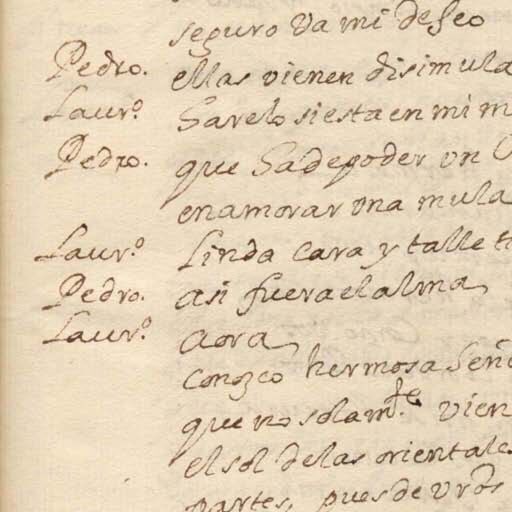 seguro va mi deseo
Pedro. ellas vienen disimula
Laurº. Sarelo si esta en mi m
Pedro. que Sa de poder un
enamorar una mula
Laurº. Linda cara y talle t
Pedro. asi fuera el alma
Laurº. aora
conozco hermosa Señ
que no solamte. vien
el sol de las orientales
partes, pues de vros